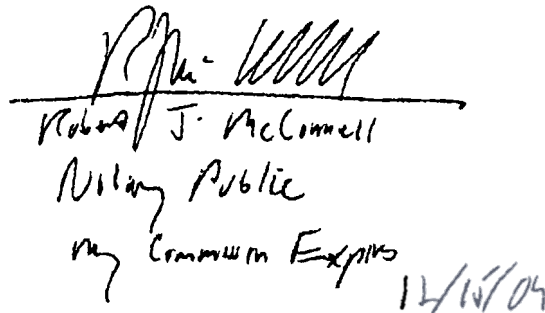 Robert J. McConnell
Notary Public
My Commission Expires
12/15/04